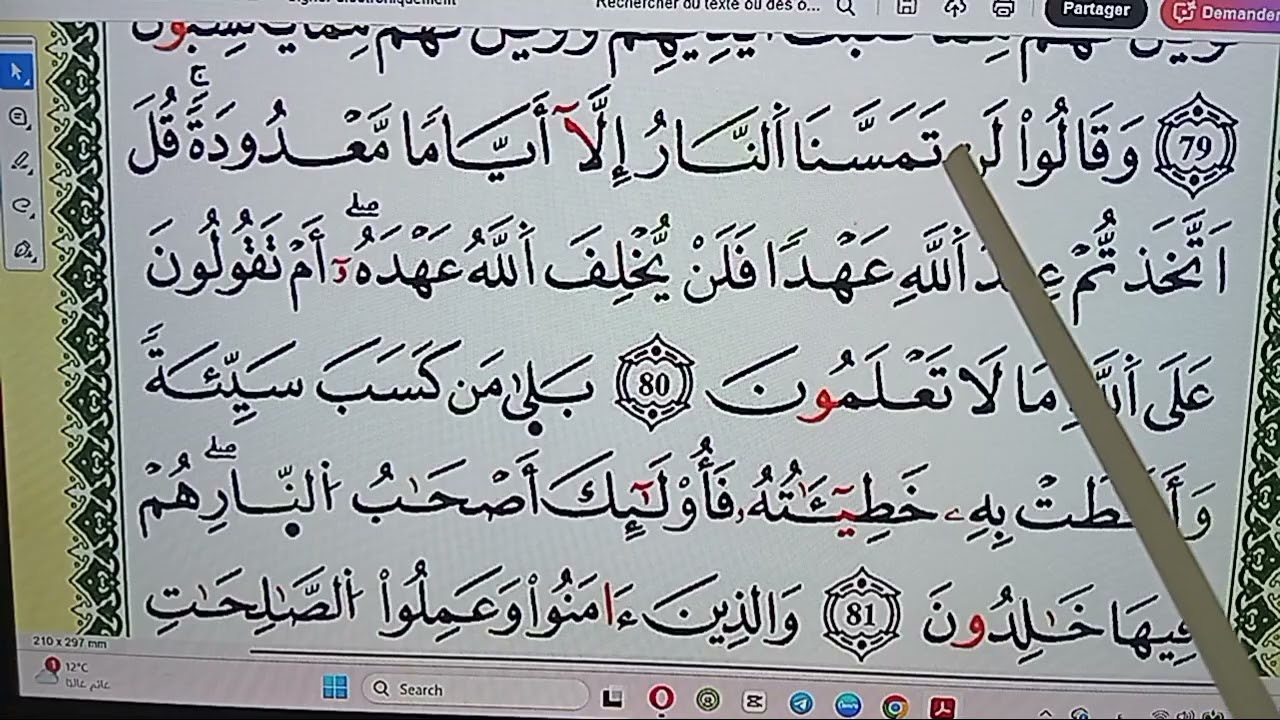 Signer électroniquement
Rechercher du texte ou des o...
Partager
Demander
79 وَقَالُواْ لَن تَمَسَّنَا اَ۬لنَّارُ إِلَّآ أَيَّاماٗ مَّعْدُودَةٗۖ قُلَ
اَتَّخَذتُّمْ عِندَ اَ۬للَّهِ عَهْداٗ فَلَنْ يُّخْلِفَ اَ۬للَّهُ عَهْدَهُۥٓۖ أَمْ تَقُولُونَ
عَلَى اَ۬للَّهِ مَا لَا تَعْلَمُونَ 80 بَل۪ىٰ مَن كَسَبَ سَيِّئَةٗ
وَأَحَٰطَتْ بِهِۦ خَطِيٓـَٰٔتُهُۥ فَأُوْلَٰٓئِكَ أَصْحَٰبُ اُ۬لنّ۪ارِۖ هُمْ
فِيهَا خَٰلِدُونَ 81 وَالذِينَ ءَامَنُواْ وَعَمِلُواْ اُ۬لصَّٰلِحَٰتِ
210 x 297 mm
1
12°C
Search